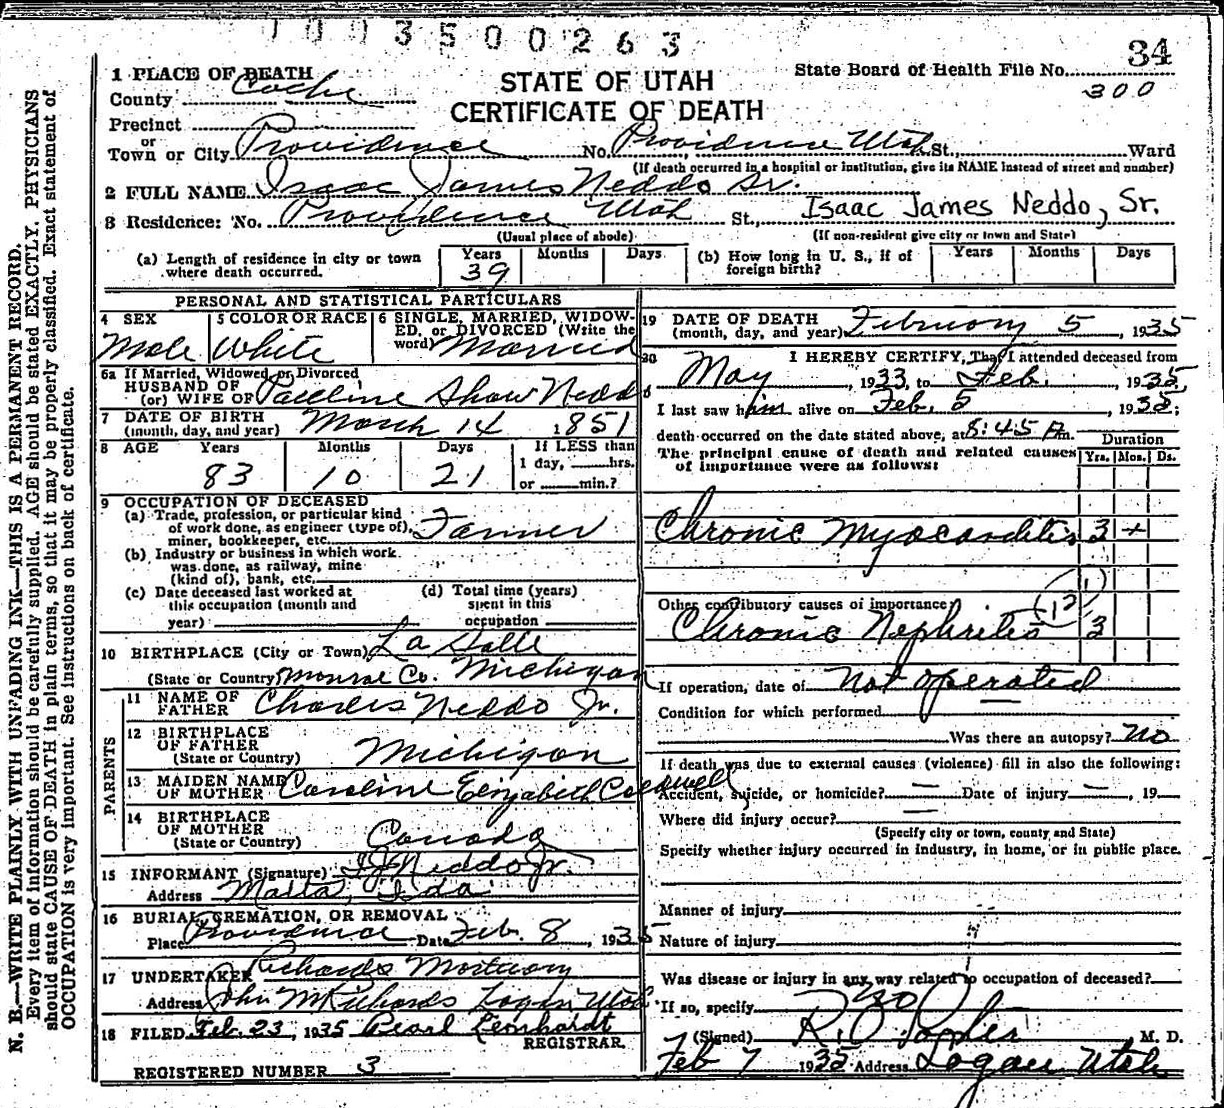 1003500263
34
State Board of Health File No. 300
STATE OF UTAH
CERTIFICATE OF DEATH
1 PLACE OF DEATH
County Cache
Precinct
or
Town or City Providence No. Providence Utah St., Ward
(If death occurred in a hospital or institution, give its NAME instead of street and number)
2 FULL NAME Isaac James Neddo Sr.
3 Residence: No. Providence Utah St., Isaac James Neddo, Sr.
(Usual place of abode) (If non-resident give city or town and State)
(a) Length of residence in city or town where death occurred. Years 39 Months Days
(b) How long in U. S., if of foreign birth? Years Months Days
PERSONAL AND STATISTICAL PARTICULARS
4 SEX Male
5 COLOR OR RACE White
6 SINGLE, MARRIED, WIDOWED, or DIVORCED (Write the word) Married
6a If Married, Widowed, or Divorced
HUSBAND OF
(or) WIFE OF Pauline Shaw Neddo
7 DATE OF BIRTH
(month, day, and year) March 14 1851
8 AGE Years 83 Months 10 Days 21 If LESS than 1 day, hrs. or min.?
9 OCCUPATION OF DECEASED
(a) Trade, profession, or particular kind
of work done, as engineer (type of),
miner, bookkeeper, etc. Farmer
(b) Industry or business in which work
was done, as railway, mine
(kind of), bank, etc.
(c) Date deceased last worked at
this occupation (month and
year)
(d) Total time (years)
spent in this
occupation
10 BIRTHPLACE (City or Town) La Salle
(State or Country) Monroe Co. Michigan
PARENTS
11 NAME OF FATHER Charles Neddo Jr.
12 BIRTHPLACE OF FATHER
(State or Country) Michigan
13 MAIDEN NAME OF MOTHER Caroline Elizabeth Caldwell
14 BIRTHPLACE OF MOTHER
(State or Country) Canada
15 INFORMANT (Signature) I J Neddo Jr.
Address Malta, Ida
16 BURIAL, CREMATION, OR REMOVAL
Place Providence Date Feb. 8, 1935
17 UNDERTAKER Richards Mortuary
Address John M Richards Logan Utah
18 FILED Feb. 23, 1935 Pearl Leonhardt
REGISTRAR.
REGISTERED NUMBER 3
19 DATE OF DEATH
(month, day, and year) February 5, 1935
20 I HEREBY CERTIFY, That I attended deceased from
May, 1933, to Feb., 1935,
I last saw him alive on Feb. 5, 1935;
death occurred on the date stated above, at 8:45 A m.
The principal cause of death and related causes
of importance were as follows:
Duration
Yrs. Mos. Ds.
Chronic Myocarditis 3 +
Other contributory causes of importance:
Chronic Nephritis 3
If operation, date of Not operated
Condition for which performed
Was there an autopsy? No
If death was due to external causes (violence) fill in also the following:
Accident, suicide, or homicide? — Date of injury —, 19
Where did injury occur? —
(Specify city or town, county and State)
Specify whether injury occurred in industry, in home, or in public place.
Manner of injury
Nature of injury
Was disease or injury in any way related to occupation of deceased?
If so, specify
(Signed) M. D.
Feb 7 1935 Address Logan Utah
N. B.—WRITE PLAINLY WITH UNFADING INK—THIS IS A PERMANENT RECORD.
Every item of information should be carefully supplied. AGE should be stated EXACTLY. PHYSICIANS
should state CAUSE OF DEATH in plain terms, so that it may be properly classified. Exact statement of
OCCUPATION is very important. See instructions on back of certificate.